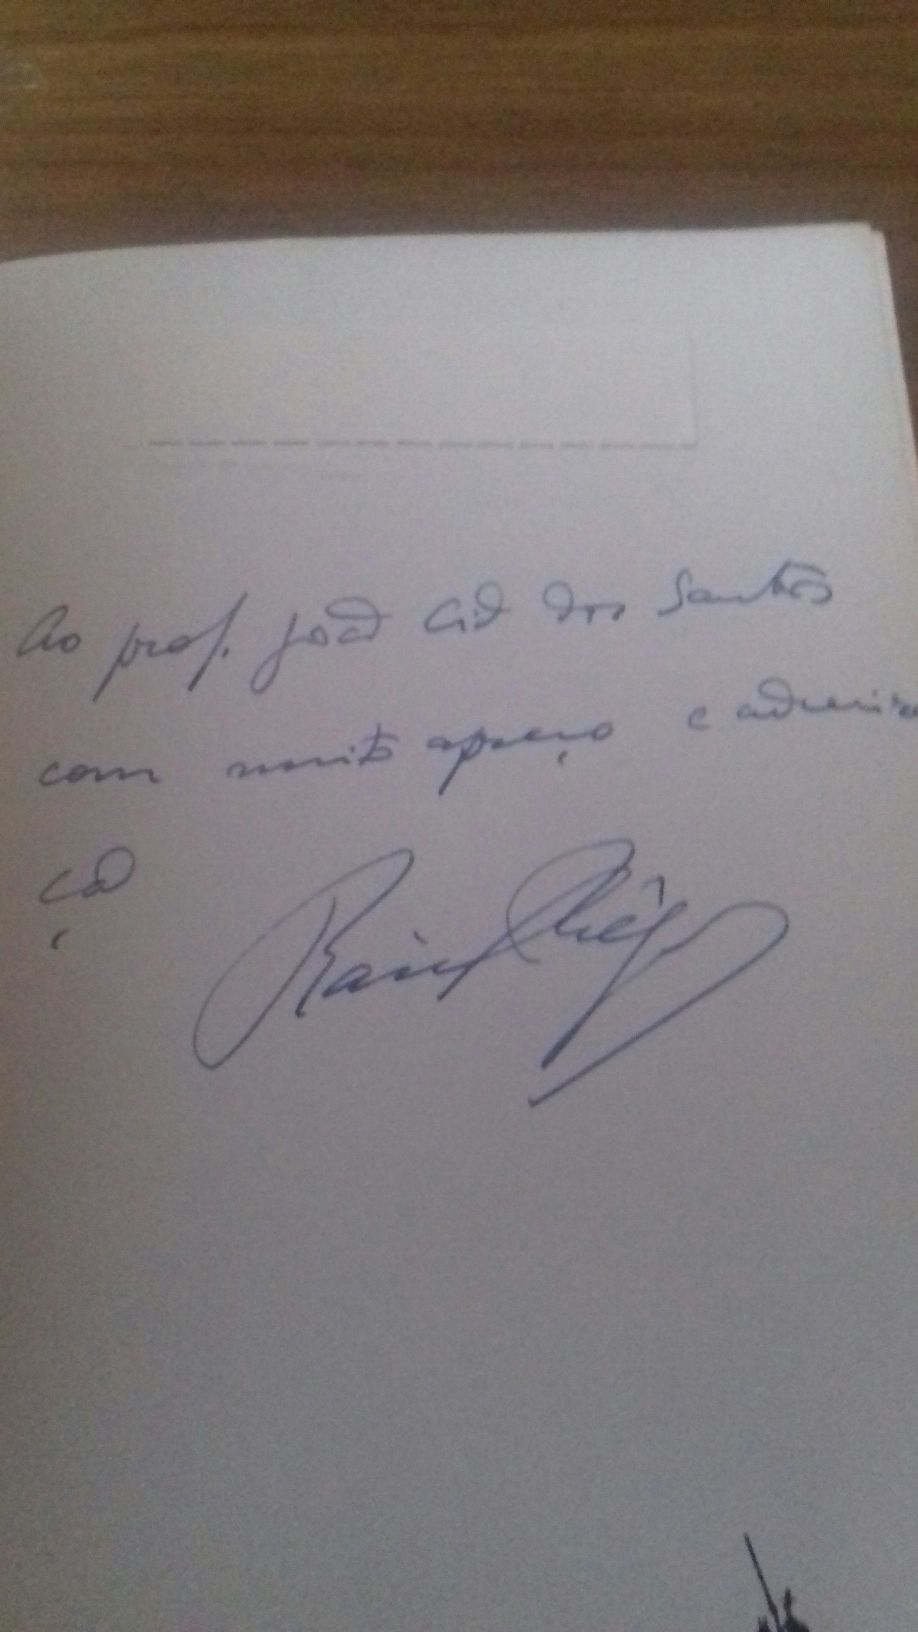 Ao prof. João Cid dos Santos
com muito apreço e admira
ção